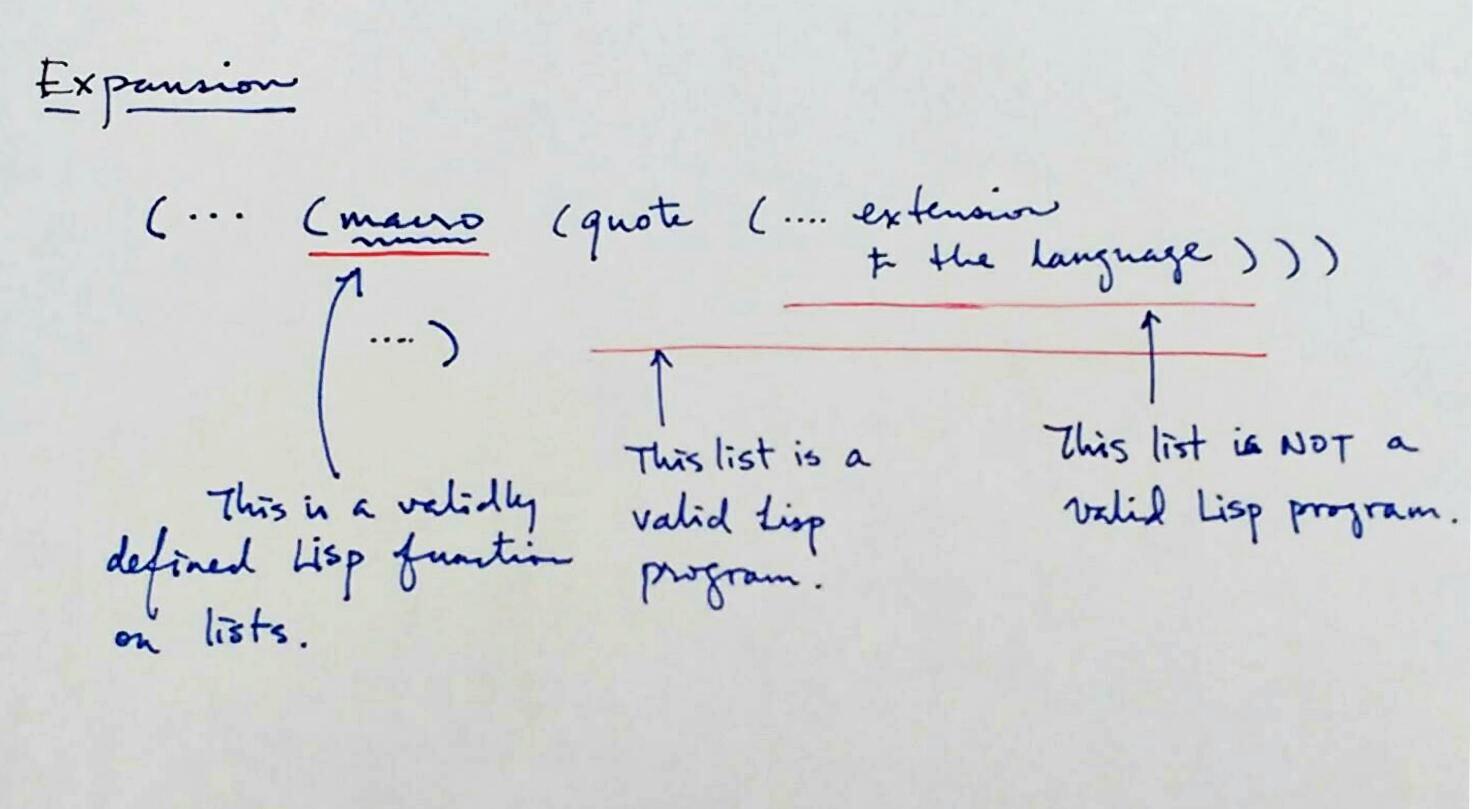 Expansion
(... (macro (quote (.... extension
to the language)))
....)
This is a validly
defined Lisp function
on lists.
This list is a
valid Lisp
program.
This list is NOT a
valid Lisp program.